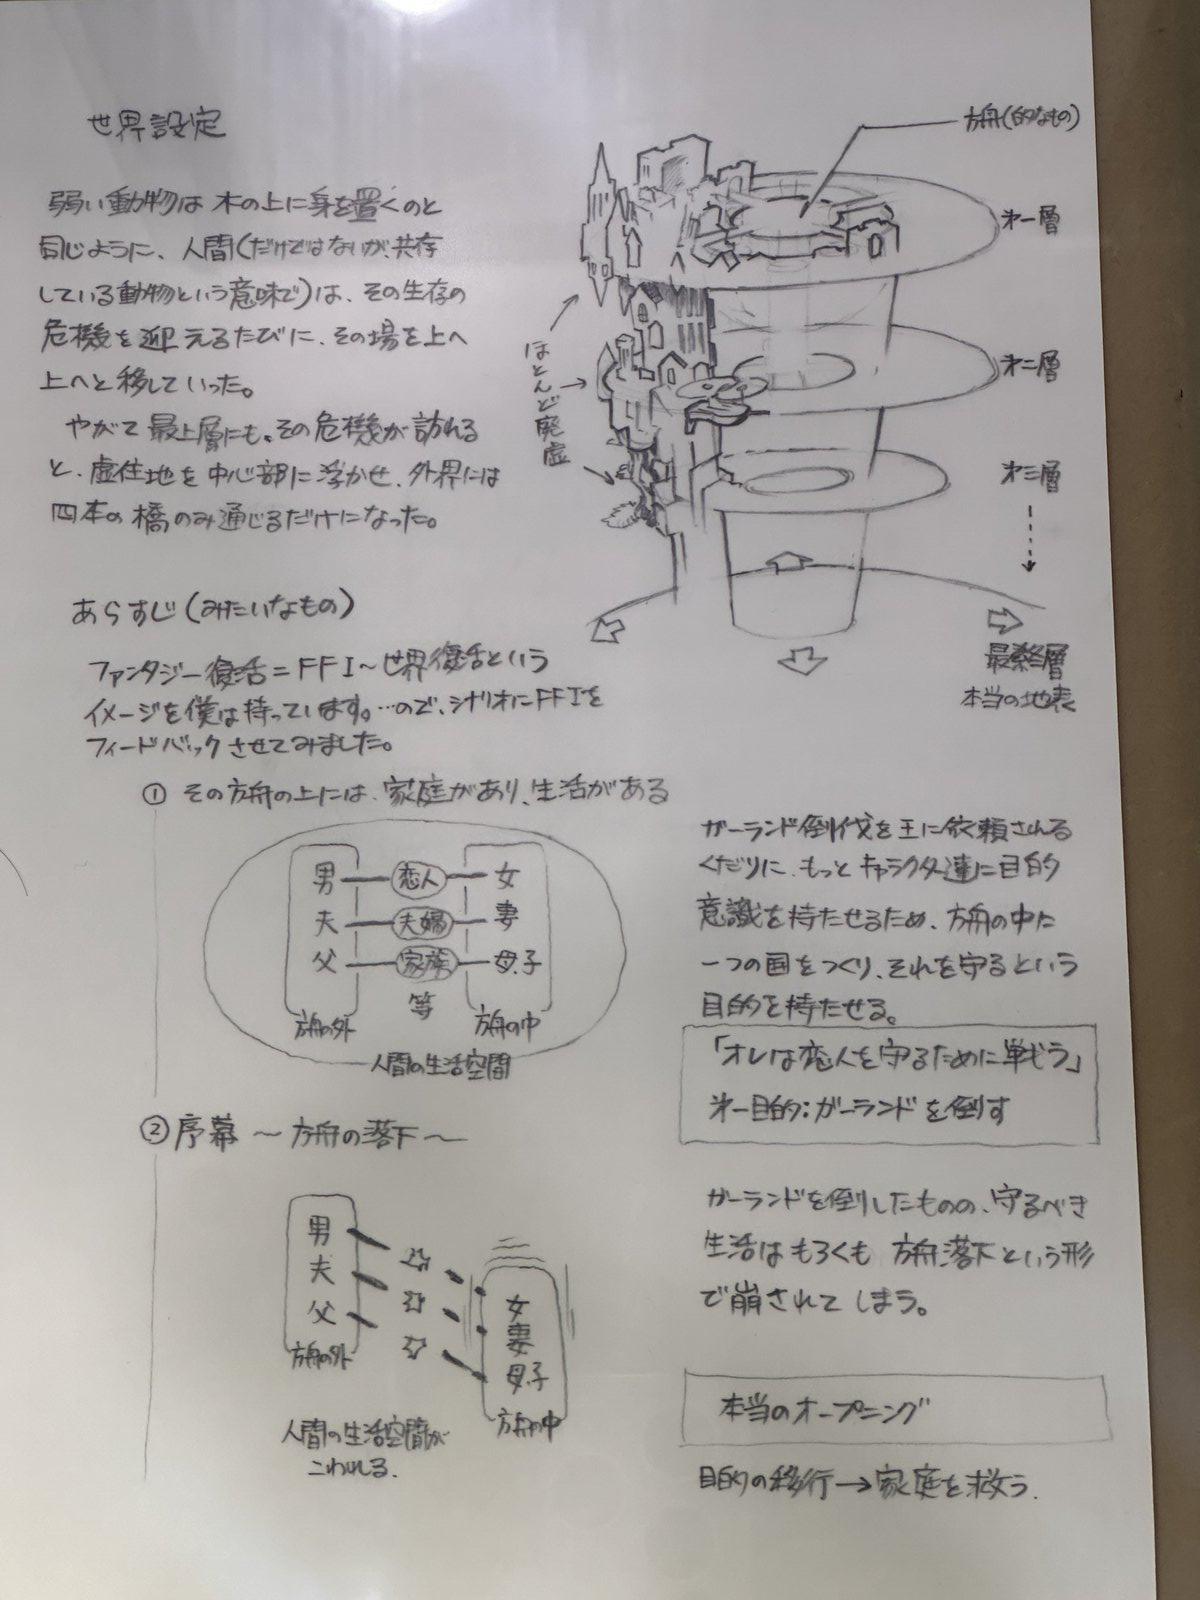 世界設定
弱い動物は木の上に身を置くのと
同じように、人間(だけではないが、共存
している動物という意味で)は、その生存の
危機を迎えるたびに、その場を上へ
上へと移していった。
やがて最上層にも、その危機が訪れる
と、虚住地を中心部に浮かせ、外界には
四本の橋のみ通じるだけになった。
方舟(的なもの)
オー層
オニ層
オ三層
ほとんど廃虚
最終層
本当の地表
あらすじ(みたいなもの)
ファンタジー復活=FFI〜世界復活という
イメージを僕は持っています。…ので、シナリオにFFIを
フィードバックさせてみました。
① その方舟の上には、家庭があり、生活がある
男 恋人 女
夫 夫婦 妻
父 家族 母、子
等
方舟の外 方舟の中
人間の生活空間
ガーランド倒伐を王に依頼される
くだりに、もっとキャラクター達に目的
意識を持たせるため、方舟の中に
一つの国をつくり、それを守るという
目的を持たせる。
「オレは恋人を守るために戦う」
オー目的:ガーランドを倒す
② 序幕 〜方舟の落下〜
男
夫
父
方舟の外
女
妻
母、子
方舟の中
人間の生活空間が
こわれる。
ガーランドを倒したものの、守るべき
生活はもろくも 方舟落下という形
で崩されてしまう。
本当のオープニング
目的の移行→家庭を救う.